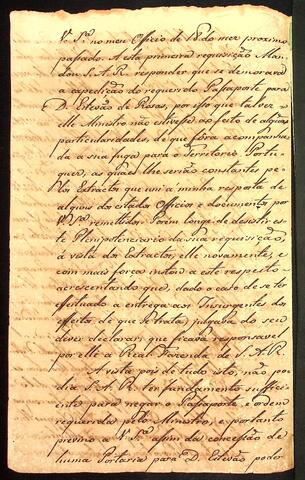 V. Sª. no meu Officio de 18 do mez proximo
passado. A esta primeira requisição Man-
dou S. A. R. responder que se demorava
a expedição do requerido Passaporte para
D. Estevão de Rosas, por isso que talvez
elle Ministro não estivesse ao feito de alguãs
particularidades, de que fôra acompanha-
da a sua fuga para o Territorio Portu-
guez, as quaes lhe serião constantes pe-
los Extractos que uni á minha resposta de
alguns dos citados Officios e documentos por
V. Sª. remettidos. Porém longe de desistir es-
te Plenipotenciario da sua requisição,
á vista dos Extractos, elle novamente, e
com mais força instou a este respeito
acrescentando que, dado o caso de se ter
effeituado a entrega aos Insurgentes dos
effeitos de que se trata, julgava do seu
dever declarar, que ficava responsavel
por elle a Real Fazenda de S. A. R.
A vista pois de tudo isto, não po-
dia S. A. R. ter fundamento sufficien-
te para negar o Passaporte e ordem
requerida pelo Ministro, e portanto
previno a V. Sª. assim da concessão de
huma Portaria para D. Estevão poder